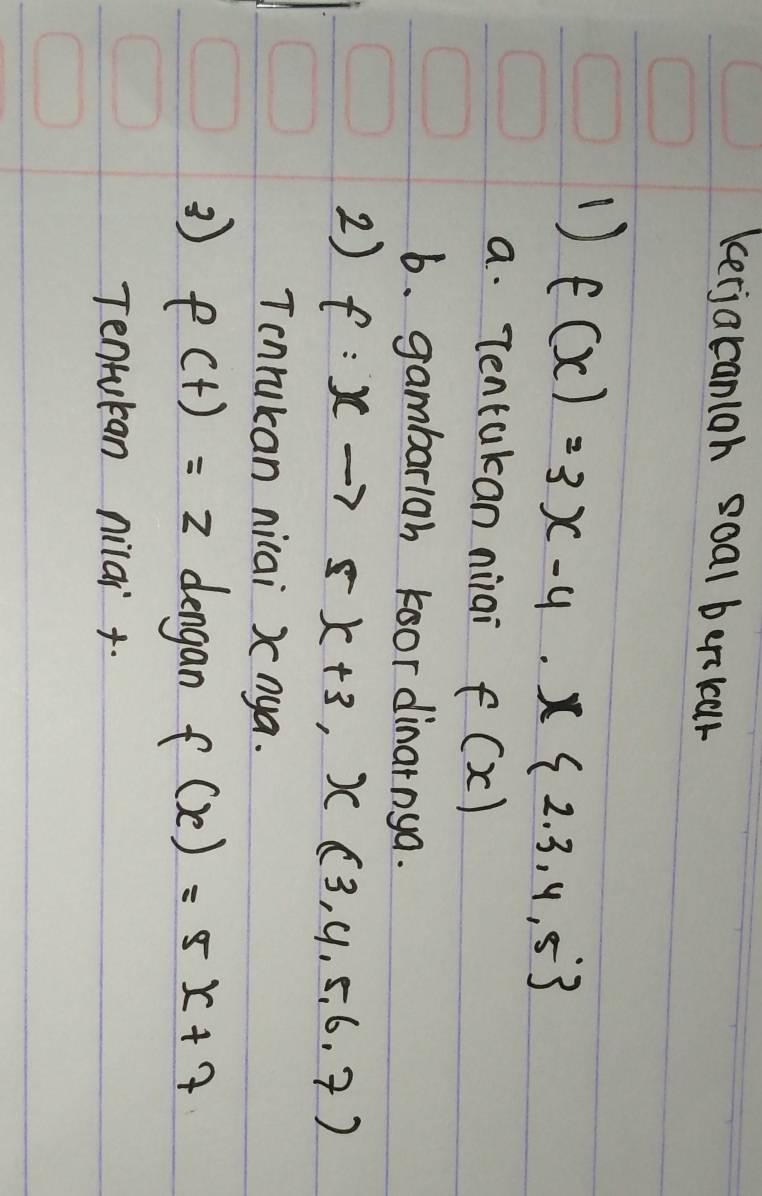 kerjakanlah soal berikut
1) f(x) = 3x - 4 . x { 2.3, 4, 5 }
a. Tentukan nilai f(x)
b. gambarlah koordinatnya.
2) f : x → 5x + 3, x (3, 4, 5, 6, 7)
Tentukan nilai x nya.
3) f(t) = 2 dengan f(x) = 5x + 7
Tentukan nilai t.